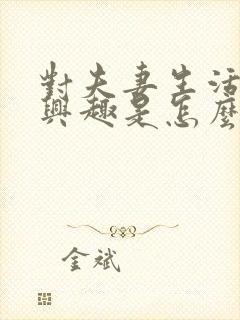 對夫妻生活
興趣是怎麼
金斌